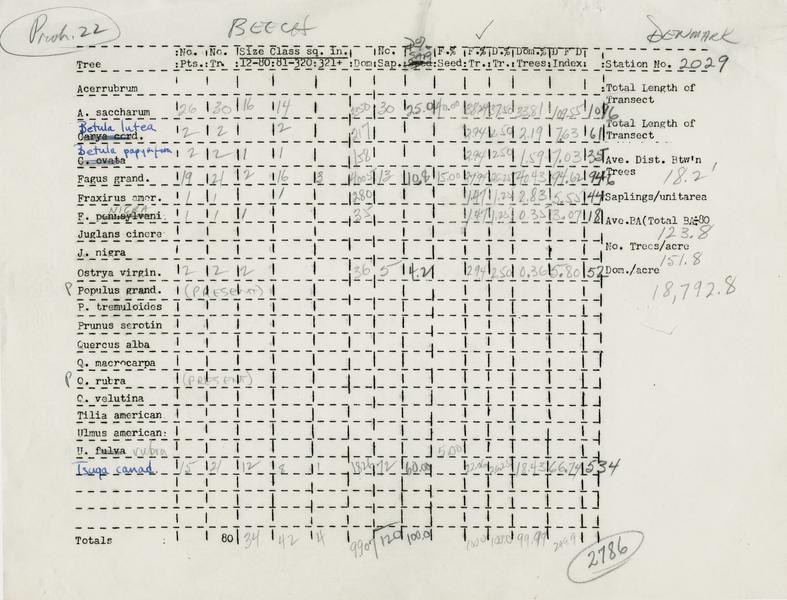 Proh. 22 BEECH ✓ DENMARK
No. No. Size Class sq. In. No. F.% F.% D.% Dom.% D F D
Tree Pts. Tr. 12-80 81-320 321+ Dom Sap. Seed Tr. Tr. Trees Index Station No. 2029
Acerrubrum Total Length of
Transect
A. saccharum 26 30 16 14 30 25.0 1096
Total Length of
Betula lutea
Carya cord. 2 2 2 217 2.94 2.50 2.19 7.63 61 Transect
Betula papyrifera
C. ovata 2 2 1 1 158 2.94 2.50 1.59 7.03 35 Ave. Dist. Btw'n
Fagus grand. 19 21 2 16 3 13 10.8 15.00 94.62 946 Trees
18.2'
Fraxinus amer. 1 1 1 280 1.47 1.25 2.83 5.55 44 Saplings/unitarea
NIGRA
F. pennsylvani. 1 1 1 35 1.47 1.25 0.35 3.07 18 Ave.BA(Total BA÷80
Juglans cinere 123.8
J. nigra No. Trees/acre
151.8
Ostrya virgin. 2 2 2 36 5 4.2 2.94 2.50 0.36 5.80 52 Dom./acre
P Populus grand. (PRESENT) 18,792.8
P. tremuloides
Prunus serotin
Quercus alba
Q. macrocarpa
P Q. rubra (PRESENT)
Q. velutina
Tilia american
Ulmus american:
U. fulva rubra 5.00
Tsuga canad. 15 21 12 8 1 1826 72 60.0 18.43 66.74 534
Totals : 80 34 42 4 9907 120 100.0 100.0 100.0 99.99
2786